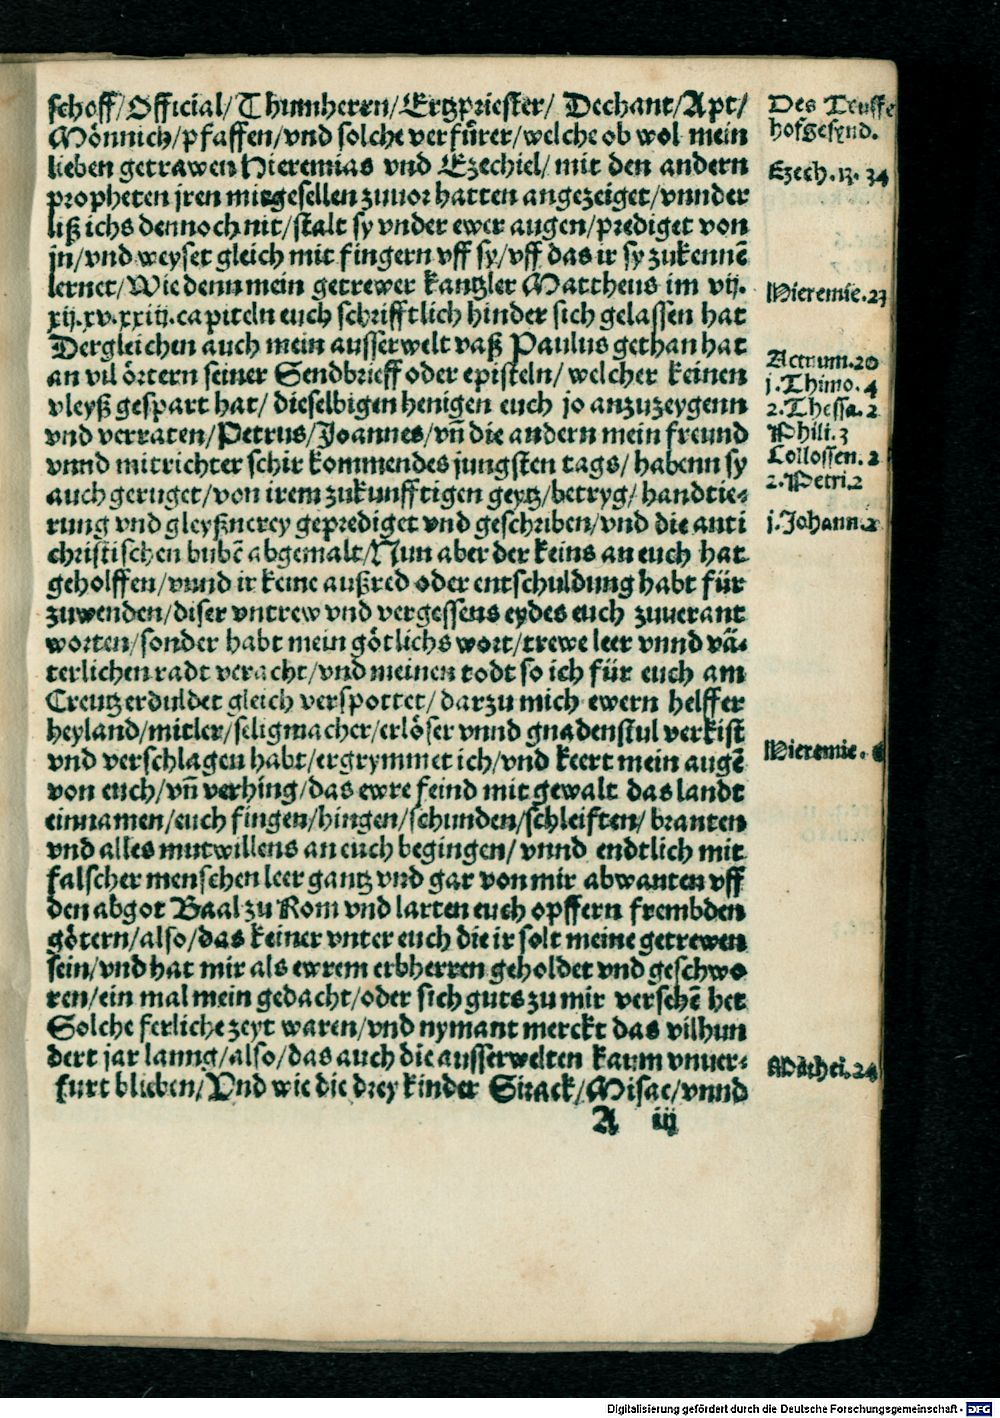 schoff/Official/Thumherrn/Ertzpriester/ Dechant/Apt/
Mönnich/pfaffen/vnd solche verfürer/welche ob wol mein
lieben getrawen Hieremias vnd Ezechiel/ mit den andern
propheten jren mitgesellen zuuor hatten angezeiget/vnnder
liß ichs dennoch nit/stalt sy vnder ewer augen/prediget von
jn/vnd weyset gleich mit fingern vff sy/vff das ir sy zukennē
lernet/Wie denn mein getrewer kantzler Mattheus im vij.
xij.xv.xxiij.capiteln euch schrifftlich hinder sich gelassen hat
Dergleichen auch mein ausserwelt vaß Paulus gethan hat
an vil örtern seiner Sendbrieff oder episteln/welcher keinen
vleyß gespart hat/ dieselbigen henigen euch jo anzuzeygenn
vnd verraten/Petrus/Joannes/vñ die andern mein freund
vnnd mitrichter schir kommendes jungsten tags/habenn sy
auch geruget/von irem zukunfftigen geytz/betryg/handtie-
rung vnd gleyßnerey geprediget vnd geschriben/vnd die anti
christischen bubē abgemalt/Nun aber der keins an euch hat
geholffen/vnnd ir keine außred oder entschuldung habt für
zuwenden/diser vntrew vnd vergessens eydes euch zuuerant
worten/sonder habt mein götlichs wort/trewe leer vnnd vä-
terlichen radt veracht/vnd meinen todt so ich für euch am
Creutz erduldet gleich verspottet/darzu mich ewern helffer
heyland/mitler/seligmacher/erlöser vnnd gnadenstul verkist
vnd verschlagen habt/ergrymmet ich/vnd keert mein augē
von euch/vñ verhing/das ewre feind mit gewalt das landt
einnamen/euch fingen/hingen/schunden/schleiften/branten
vnd alles mutwillens an euch begingen/vnnd endtlich mit
falscher menschen leer gantz vnd gar von mir abwanten vff
den abgot Baal zu Rom vnd larten euch opffern frembden
götern/also/das keiner vnter euch die ir solt meine getrewen
sein/vnd hat mir als ewrem erbherren geholdet vnd geschwo
ren/ein mal mein gedacht/oder sich guts zu mir versehē het
Solche ferliche zeyt waren/vnd nymant merckt das vilhun
dert jar lanng/also/das auch die ausserwelten kaum vnuer-
furt blieben/Vnd wie die drey kinder Sirack/Misac/vnnd
A iij
Des Teuffe
hofgesynd.
Ezech.13.34
Hieremie.23
Actuum.20
j.Thimo.4
2.Thessa.2
Phili.3
Collossen.2
2.Petri.2
j.Johann.2
Hieremie.6
Mathei.24
Digitalisierung gefördert durch die Deutsche Forschungsgemeinschaft - DFG